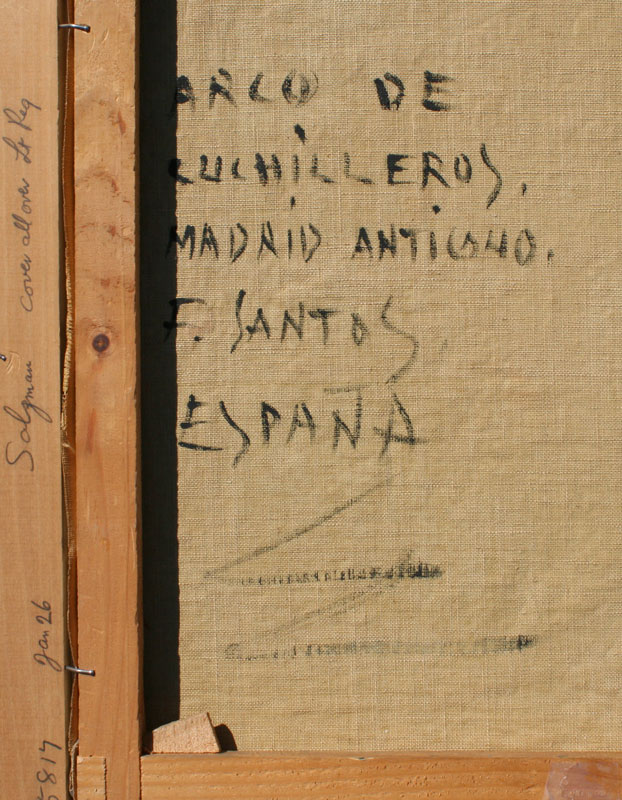 ARCO DE
CUCHILLEROS.
MADRID ANTIGUO.
F. SANTOS
ESPAÑA
Salzman cover all over Lt Reg
Jan 26
5817